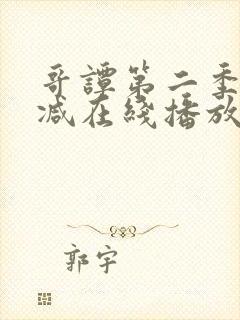 哥譚第二季
减在綫播放
郭宇